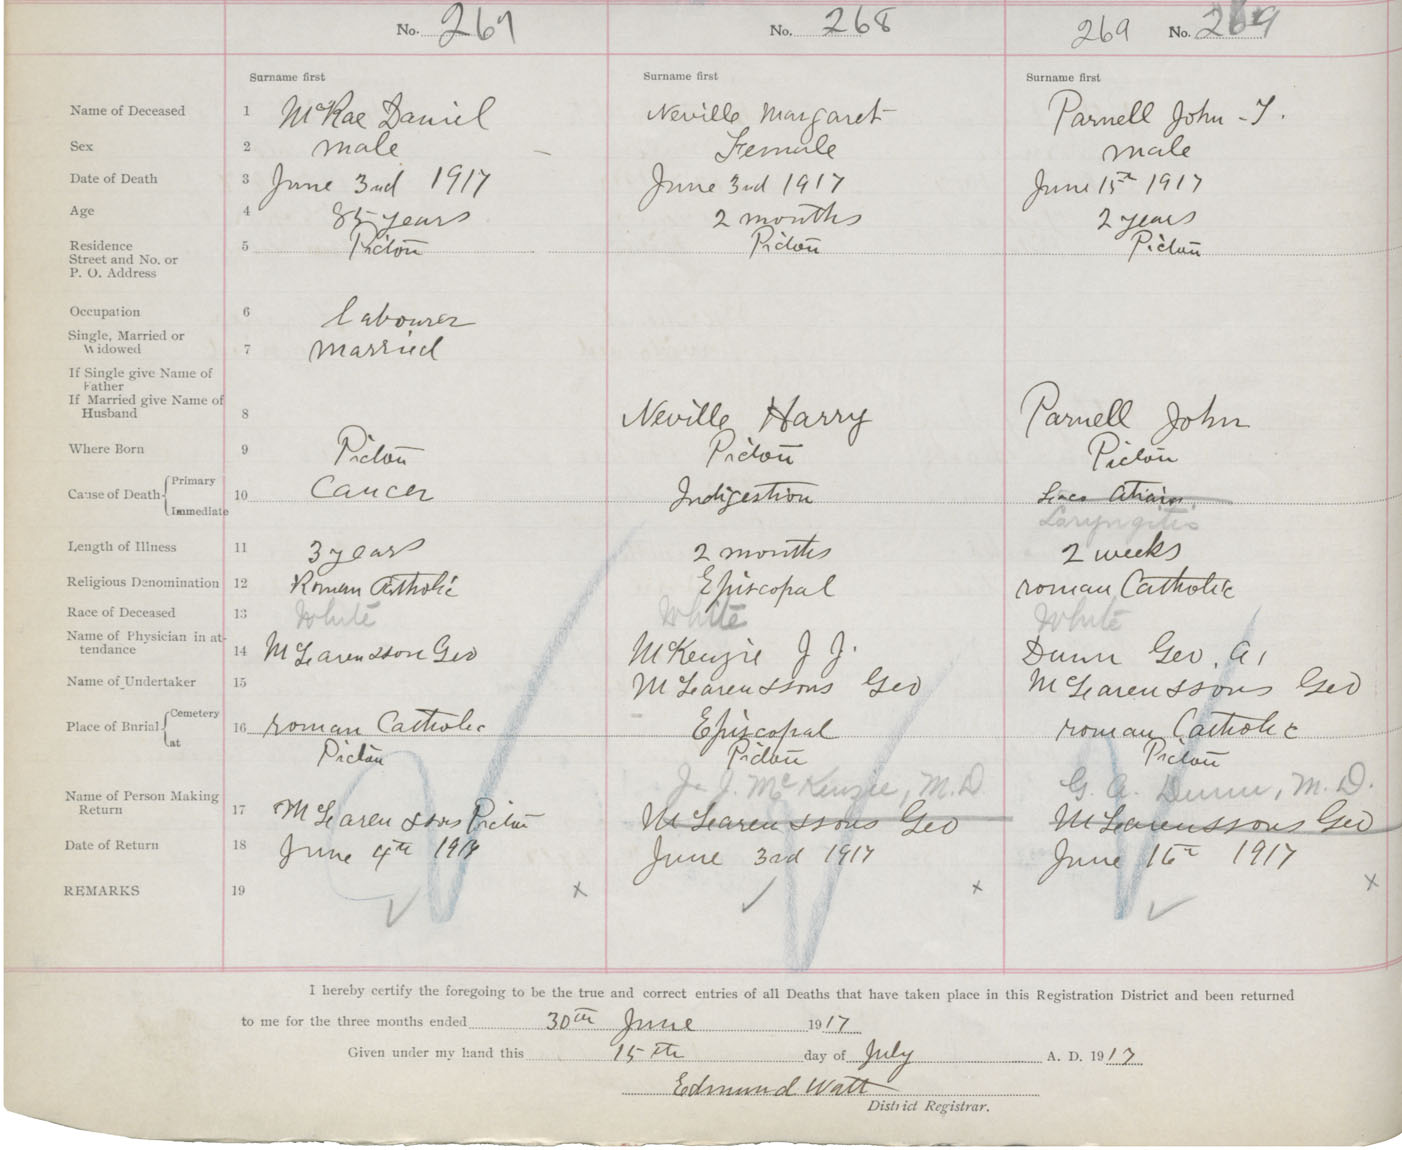 No. 267 No. 268 269 No. 269
Surname first Surname first Surname first
Name of Deceased 1 McRae Daniel Neville Margaret Parnell John - T.
Sex 2 male Female male
Date of Death 3 June 3rd 1917 June 3rd 1917 June 15th 1917
Age 4 85 years 2 months 2 years
Residence
Street and No. or
P. O. Address 5 Picton Picton Picton
Occupation 6 Labourer
Single, Married or
Widowed 7 married
If Single give Name of
Father
If Married give Name of
Husband 8 Neville Harry Parnell John
Where Born 9 Picton Picton Picton
Cause of Death Primary 10 Cancer Indigestion
Immediate Laryngitis
Length of Illness 11 3 years 2 months 2 weeks
Religious Denomination 12 Roman Catholic Episcopal roman Catholic
Race of Deceased 13 White White White
Name of Physician in at-
tendance 14 McLaren & sons Geo McKenzie J J. Dunn Geo. A.
Name of Undertaker 15 McLaren & sons Geo McLaren & sons Geo
Place of Burial Cemetery 16 roman Catholic Episcopal roman Catholic
at Picton Picton Picton
J. J. McKenzie, M.D. G. A. Dunn, M.D.
Name of Person Making
Return 17 McLaren & sons Picton McLaren & sons Geo McLaren & sons Geo
Date of Return 18 June 4th 1917 June 3rd 1917 June 16th 1917
REMARKS 19 x x x
I hereby certify the foregoing to be the true and correct entries of all Deaths that have taken place in this Registration District and been returned
to me for the three months ended 30th June 1917
Given under my hand this 15th day of July A. D. 1917
Edmund Watt
District Registrar.